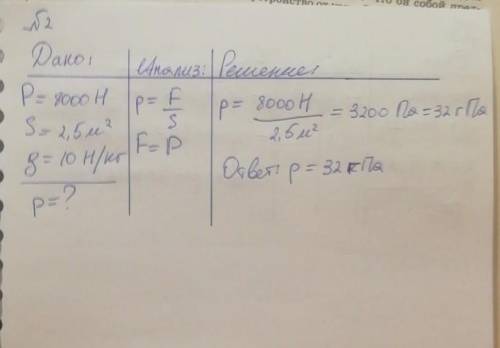 √2
Дано:
P = 8000 Н
S = 2,5 м²
g = 10 Н/кг
p = ?
Анализ:
p = F/S
F = P
Решение:
p = 8000 Н / 2,5 м² = 3200 Па = 32 гПа
Ответ: p = 32 гПа